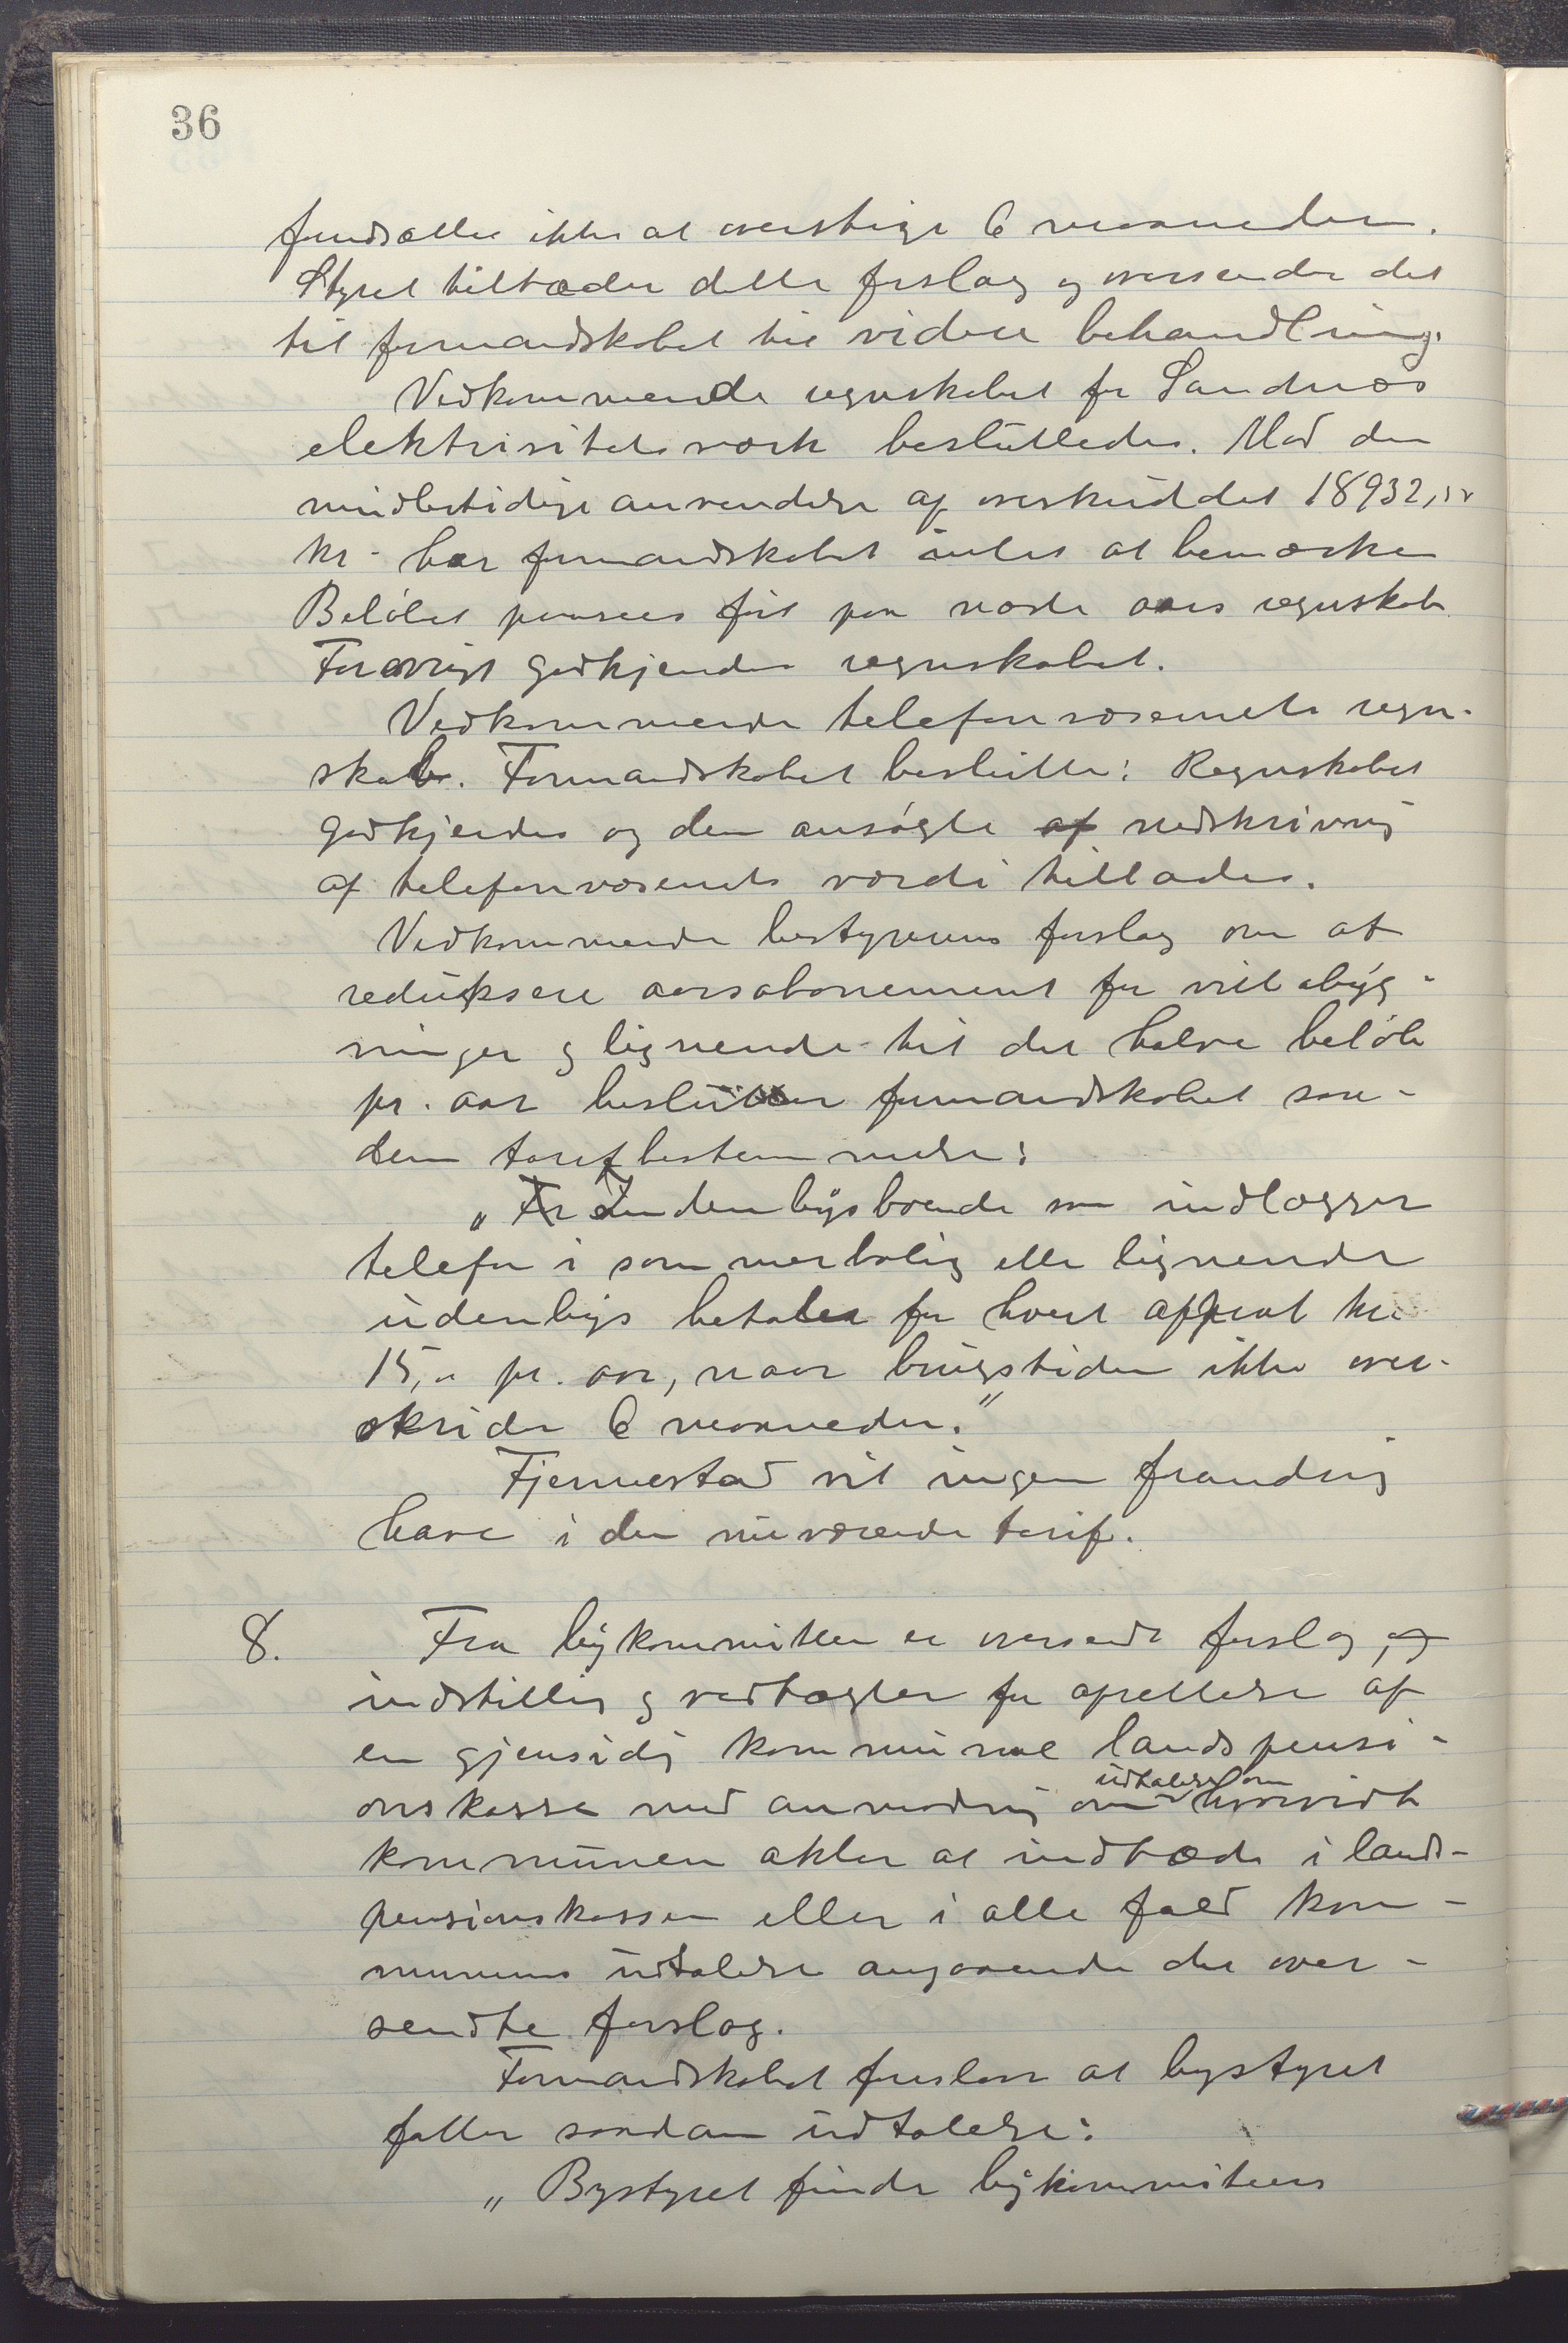 36
forudsættes ikke at overstige 6 maaneder.
Styret tiltræder dette forslag og oversender det
til formandskabet til videre behandling.
Vedkommende regnskabet for Sandnæs
elektrisitetsværk besluttedes. Mod den
midlertidige anvendelse af overskuddet 18932,
kr. har formandskabet intet at bemærke
Beløbet paasees ført paa næste aars regnskab.
Forøvrigt godkjendes regnskabet.
Vedkommende telefonvæsenets regn-
skab. Formandskabet beslutter: Regnskabet
godkjendes og den ansøgte af nedskrivning
af telefonvæsenets værdi tillades.
Vedkommende bestyrerens forslag om at
reduksere aarsabonement for villabyg-
ninger og lignende til det halve beløb
pr. aar beslutter formandskabet saa-
dan tarifbestemmelse:
„For Indenbysboende som indlægger
telefon i sommerbolig eller lignende
udenbys betales for hvert apparat kr.
15,00 pr. aar, naar brugstiden ikke over-
skrider 6 maaneder."
Fjermestad vil ingen forandring
have i den nuværende tarif.
8. Fra bykommiteen er oversendt forslag, og
indstilling og vedtægter for oprettelse af
en gjensidig kommunal landspensi-
onskasse med anmodning om udtalelse om hvorvidt
kommunen akter at indtræde i lands-
pensionskassen eller i alle fald kom-
munens udtalelse angaaende det over-
sendte forslag.
Formandskabet foreslaar at bystyret
fatter saadan udtalelse:
„Bystyret finder bykommiteens